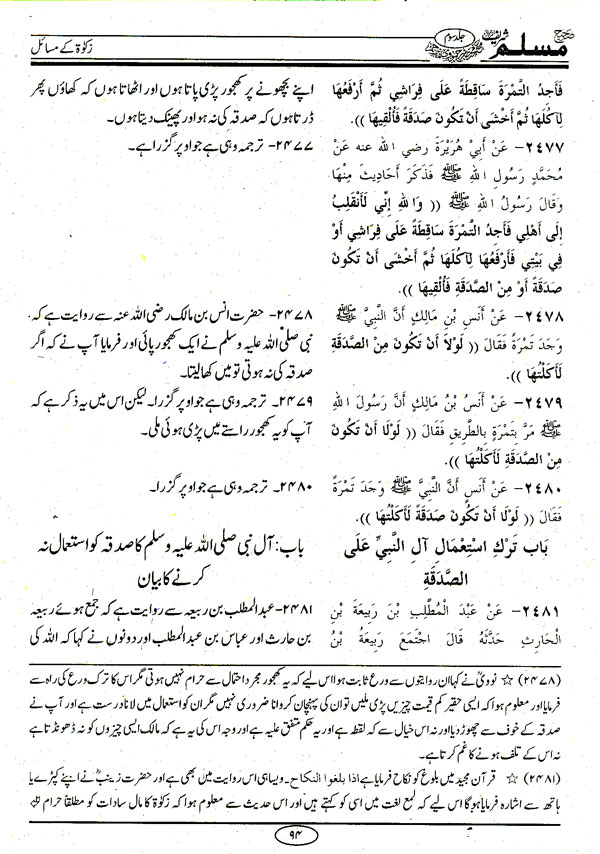 صحیح مسلم شریف
جلد سوم
زکوٰۃ کے مسائل
فَأَجِدُ التَّمْرَةَ سَاقِطَةً عَلَى فِرَاشِي ثُمَّ أَرْفَعُهَا
لِآكُلَهَا ثُمَّ أَخْشَى أَنْ تَكُونَ صَدَقَةً فَأُلْقِيهَا )).
۲٤۷۷- عَنْ أَبِي هُرَيْرَةَ رضي الله عنه عَنْ
مُحَمَّدٍ رَسُولِ اللهِ ﷺ فَذَكَرَ أَحَادِيثَ مِنْهَا
وَقَالَ رَسُولُ اللهِ ﷺ (( وَاللهِ إِنِّي لَأَنْقَلِبُ
إِلَى أَهْلِي فَأَجِدُ التَّمْرَةَ سَاقِطَةً عَلَى فِرَاشِي أَوْ
فِي بَيْتِي فَأَرْفَعُهَا لِآكُلَهَا ثُمَّ أَخْشَى أَنْ تَكُونَ
صَدَقَةً أَوْ مِنَ الصَّدَقَةِ فَأُلْقِيهَا )).
۲٤۷۸- عَنْ أَنَسِ بْنِ مَالِكٍ أَنَّ النَّبِيَّ ﷺ
وَجَدَ تَمْرَةً فَقَالَ (( لَوْلَا أَنْ تَكُونَ مِنْ الصَّدَقَةِ
لَأَكَلْتُهَا )).
۲٤۷۹- عَنْ أَنَسُ بْنُ مَالِكٍ أَنَّ رَسُولَ اللهِ
ﷺ مَرَّ بِتَمْرَةٍ بِالطَّرِيقِ فَقَالَ (( لَوْلَا أَنْ تَكُونَ
مِنْ الصَّدَقَةِ لَأَكَلْتُهَا )).
۲٤۸۰- عَنْ أَنَسٍ أَنَّ النَّبِيَّ ﷺ وَجَدَ تَمْرَةً
فَقَالَ (( لَوْلَا أَنْ تَكُونَ صَدَقَةً لَأَكَلْتُهَا )).
بَاب تَرْكِ اسْتِعْمَالِ آلِ النَّبِيِّ عَلَى
الصَّدَقَةِ
۲٤۸۱- عَنْ عَبْدِ الْمُطَّلِبِ بْنِ رَبِيعَةَ بْنِ
الْحَارِثِ حَدَّثَهُ قَالَ اجْتَمَعَ رَبِيعَةُ بْنُ
اپنے بچھونے پر کھجور پڑی پاتا ہوں اور اٹھاتا ہوں کہ کھاؤں پھر
ڈرتا ہوں کہ صدقہ کی نہ ہو اور پھینک دیتا ہوں۔
۲۴۷۷- ترجمہ وہی ہے جو اوپر گزرا ہے۔
۲۴۷۸- حضرت انس بن مالک رضی اللہ عنہ سے روایت ہے کہ
نبی صلی اللہ علیہ وسلم نے ایک کھجور پائی اور فرمایا آپ نے کہ اگر
صدقہ کی نہ ہوتی تو میں کھا لیتا۔
۲۴۷۹- ترجمہ وہی ہے جو اوپر گزرا۔ لیکن اس میں یہ ذکر ہے کہ
آپ کو یہ کھجور راستے میں پڑی ہوئی ملی۔
۲۴۸۰- ترجمہ وہی ہے جو اوپر گزرا۔
باب: آل نبی صلی اللہ علیہ وسلم کا صدقہ کو استعمال نہ
کرنے کا بیان
۲۴۸۱- عبدالمطلب بن ربیعہ سے روایت ہے کہ جمع ہوئے ربیعہ
بن حارث اور عباس بن عبدالمطلب اور دونوں نے کہا کہ اللہ کی
(۲۴۷۸) ☆ نوویؒ نے کہا ان روایتوں سے ورع ثابت ہوا اس لیے کہ یہ کھجور مجرد احتمال سے حرام نہیں ہوتی مگر اس کا ترک ورع کی راہ سے
فرمایا اور معلوم ہوا کہ ایسی حقیر کم قیمت چیزیں پڑی ملیں تو ان کی پہچان کروانا ضروری نہیں مگر ان کو استعمال میں لانا درست ہے اور آپ نے
صدقہ کے خوف سے چھوڑ دیا اور نہ اس خیال سے کہ لقطہ ہے اور یہ حکم متفق علیہ ہے اور وجہ اس کی یہ ہے کہ مالک ایسی چیزوں کو نہ ڈھونڈتا ہے
نہ اس کے تلف ہونے کا غم کرتا ہے۔
(۲۴۸۱) ☆ قرآن مجید میں بلوغ کو نکاح فرمایا ہے اذا بلغوا النکاح۔ ویسا ہی اس روایت میں بھی ہے اور حضرت زینبؓ نے اپنے کپڑے یا
ہاتھ سے اشارہ فرمایا ہوگا اس لیے کہ لمع لغت میں اسی کو کہتے ہیں اور اس حدیث سے معلوم ہوا کہ زکوٰۃ کا مال سادات کو مطلقا حرام
۹۴